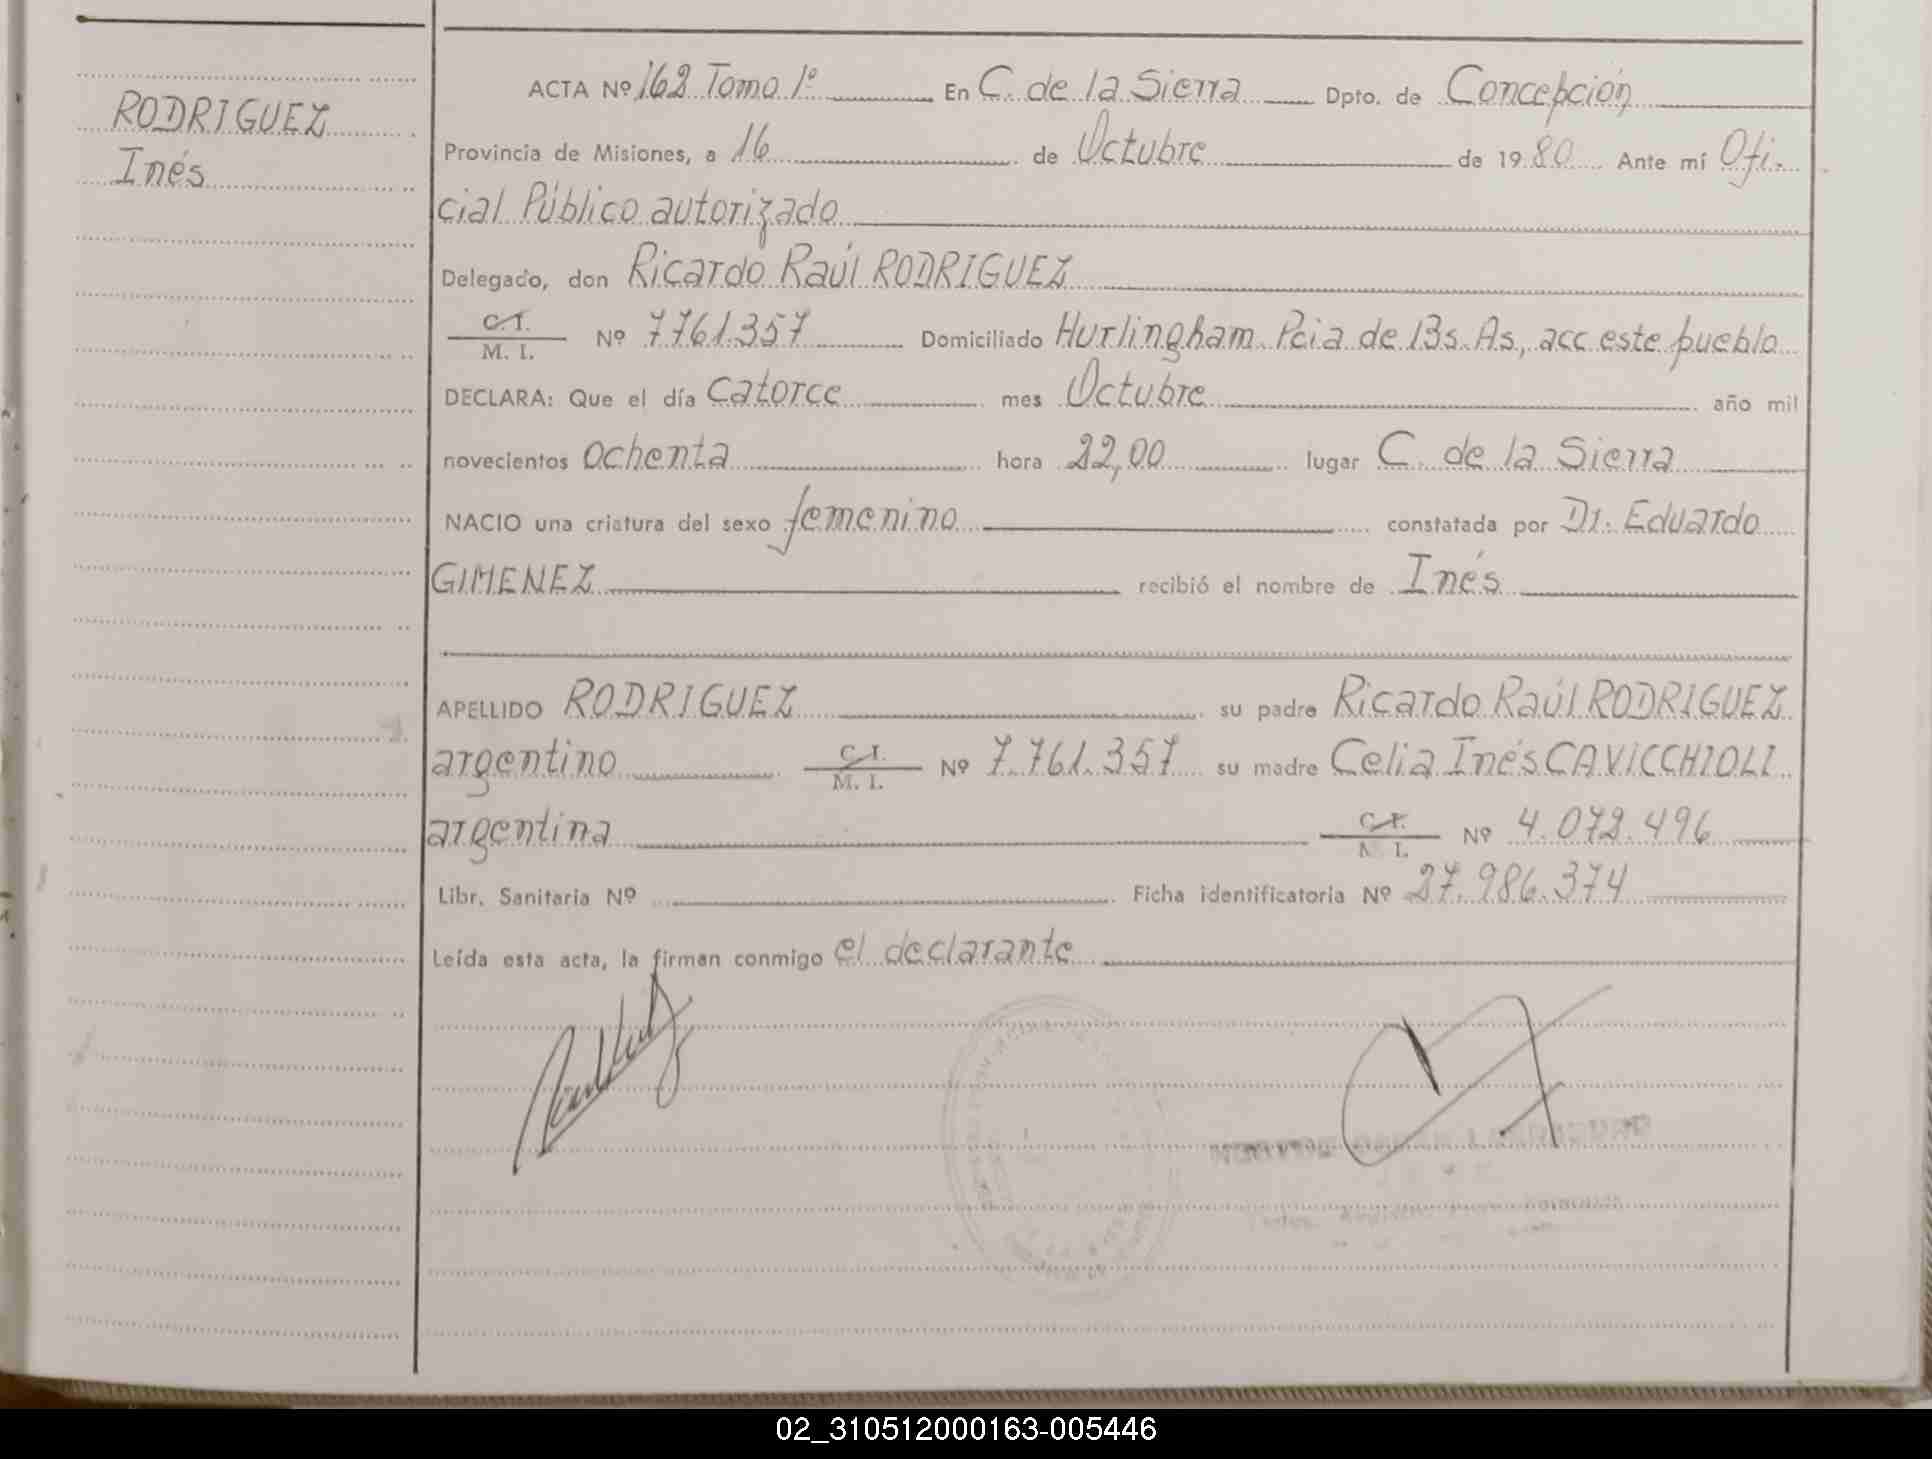 RODRIGUEZ
Inés
ACTA Nº 162 Tomo 1º En C. de la Sierra Dpto. de Concepción
Provincia de Misiones, a 16 de Octubre de 1980 Ante mí Ofi-
cial Público autorizado
Delegado, don Ricardo Raúl RODRIGUEZ
C.I.
M. I. Nº 7761.357 Domiciliado Hurlingham Pcia de Bs. As, acc este pueblo
DECLARA: Que el día catorce mes Octubre año mil
novecientos ochenta hora 22,00 lugar C. de la Sierra
NACIO una criatura del sexo femenino constatada por Dr. Eduardo
GIMENEZ recibió el nombre de Inés
APELLIDO RODRIGUEZ su padre Ricardo Raúl RODRIGUEZ
argentino C.I.
M. I. Nº 7.761.357 su madre Celia Inés CAVICCHIOLI
argentina C.I.
M. I. Nº 4.072.496
Libr. Sanitaria Nº Ficha identificatoria Nº 27.986.374
Leída esta acta, la firman conmigo el declarante
02_310512000163-005446